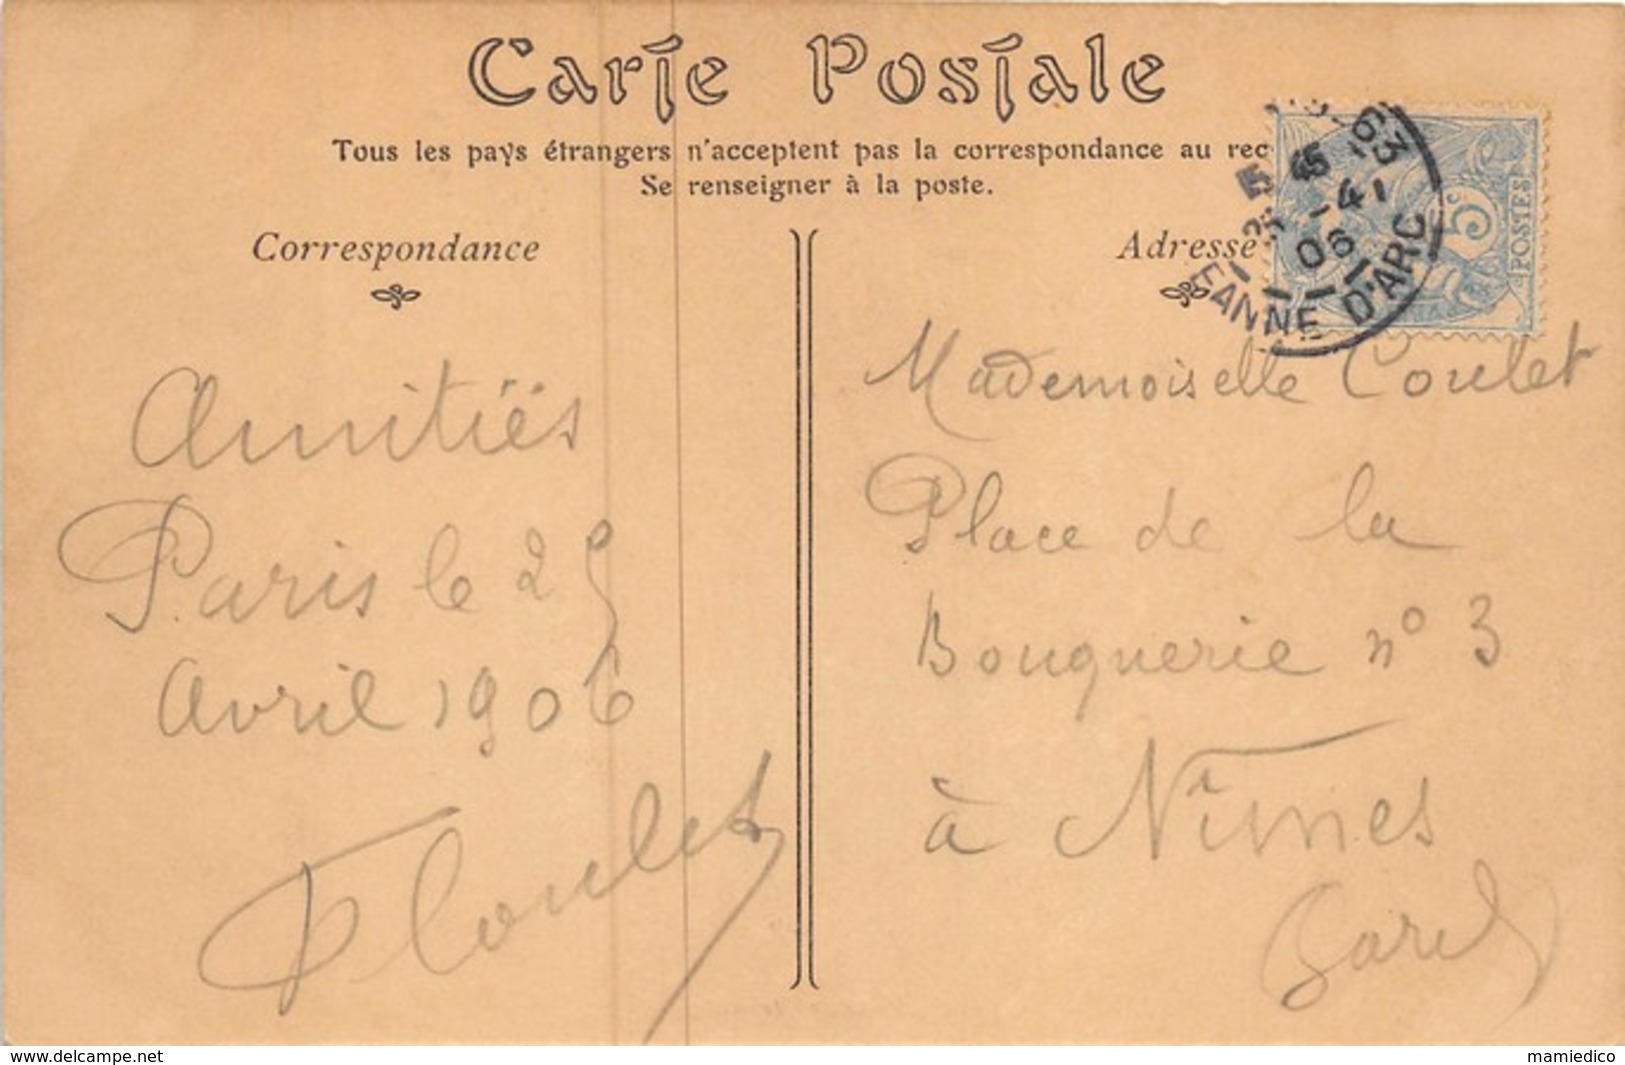 Carte Postale
Tous les pays étrangers n'acceptent pas la correspondance au rec
Se renseigner à la poste.
Correspondance
Adresse
63
45
-4
06
JEANNE D'ARC
5c
POSTES
Amitiés
Paris le 25
Avril 1906
Coulet
Mademoiselle Coulet
Place de la
Bouquerie n° 3
à Nîmes
Gard
www.delcampe.net
mamiedico